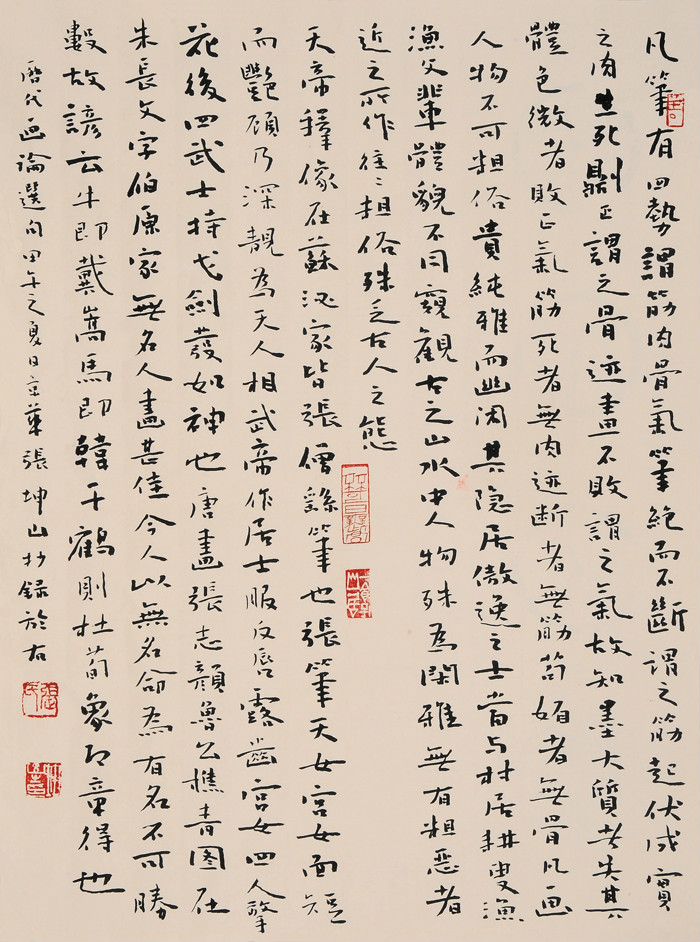 凡筆有四勢謂筋肉骨氣筆絕而不斷謂之筋起伏成實
之肉生死剛正謂之骨迹畫不敗謂之氣故知墨大質者失其
體色微者敗正氣筋死者無肉迹断者無筋苟媚者無骨凡画
人物不可粗俗貴純雅而幽闲其隐居傲逸之士當与村居耕叟漁
漁父輩體貌不同竊觀古之山水中人物殊為閑雅無有粗惡者
近之所作往々粗俗殊乏古人之態
天帝釋像在蘇泌家皆張僧繇筆也張筆天女宮女面短
而豔頋乃深靚為天人相武帝作居士服反唇露齒宮女四人擎
花後四武士持戈劍發如神也唐畫張志顔魯公樵青图在
朱長文字伯原家無名人畫甚佳今人以無名命為有名不可勝
數故諺云牛即戴嵩馬即韓干鶴則杜荀象即章得也
歷代画論選句甲午之夏日京華張坤山抄録於右